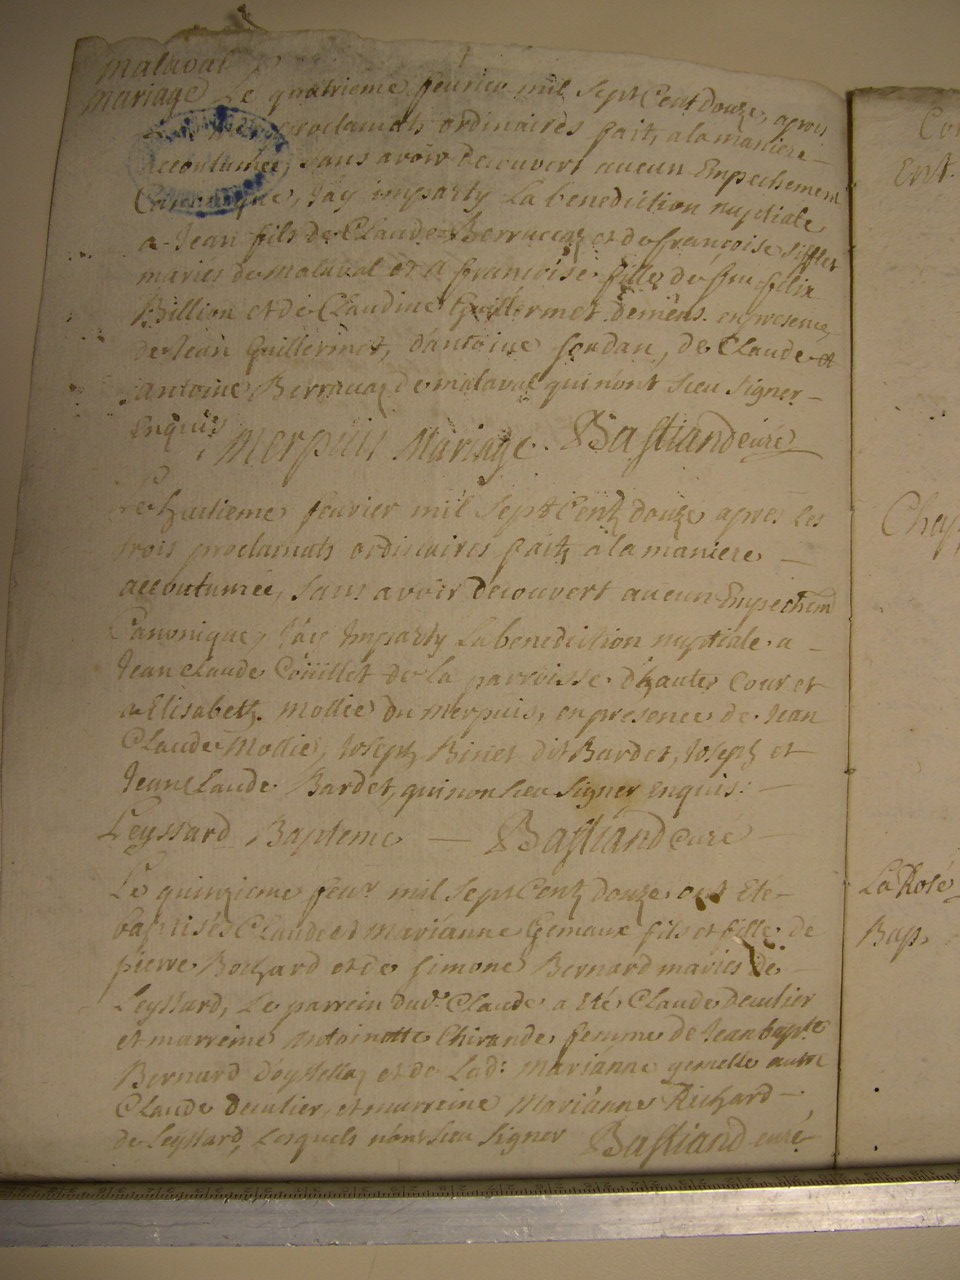 Malaval
Mariage Le quatrieme fevrier mil Sept Cent Douze, apres
proclamats ordinaires fait, a la maniere
accoutumée, sans avoir decouvert aucun Empechement
Canonique, J'ay imparty La benediction nuptiale
a Jean fils de Claude Berruaz et de francoise Sifflet
mariés de malaval et a francoise fille de feu felix
Billion et de Claudine Guillermet demens. en presence
de Jean Guillermet, d'antoine Jordan, de Claude et
antoine Berruaz de malaval qui n'ont sceu signer
Enquis
Merpuis Mariage. Bastiand curé
Le huitieme fevrier mil Sept Centz douze apres les
trois proclamats ordinaires faitz a la maniere
accoutumée, sans avoir decouvert aucun Empechem
Canonique, J'ay Imparty La benediction nuptiale a
Jean claude Coüillet de la parroisse d'haute Cour et
a Elisabetz Mollie du Merpuis, en presence de Jean
Claude Mollie, Josepz Binet dit Bardet, Josepz et
Jean Claude Bardet, qui non sceu signer enquis.
Leyssard Bapteme Bastiand curé
Le quinzieme fevr mil Sept Centz douze ont Eté
baptisés Claude et Marianne Gemaux fils et fille de
pierre Bochard et de Simone Bernard mariés de
Leyssard, Le parrein dud. Claude a eté Claude Deculier
et marreine Antoinette Chirande femme de Jean bapte
Bernard d'Eyssella, et de Lad: Marianne gemelle autre
Claude Deculier, et marreine Marianne Richard
de Leyssard, Lesquels n'ont sceu signer Bastiand curé
Ent.
Chap
La Rose
Bap.